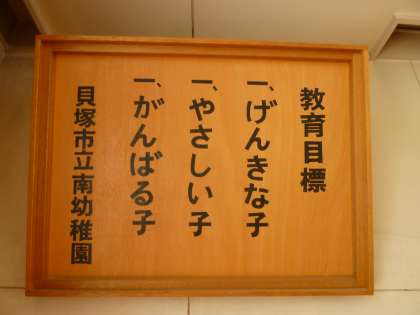 教育目標
一、げんきな子
一、やさしい子
一、がんばる子
貝塚市立南幼稚園